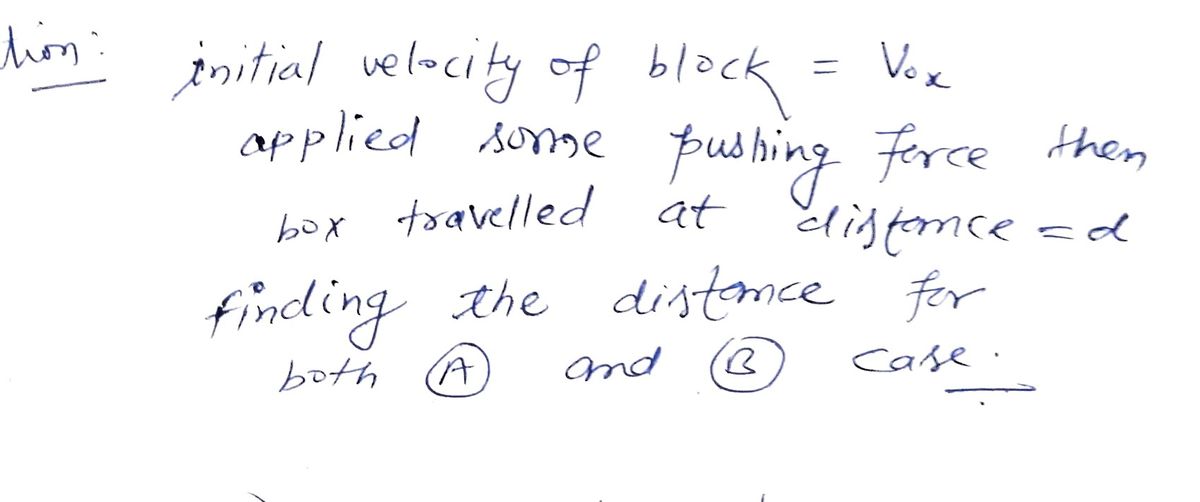 tion: initial velocity of block = Vox
applied some pushing force then
box travelled at distance = d
finding the distance for
both (A) and (B) case.